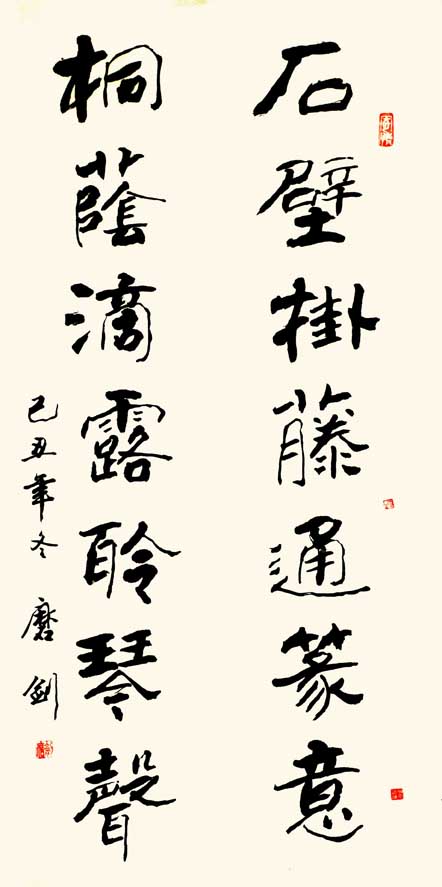 石壁掛藤通篆意
桐蔭滴露聆琴聲
己丑年冬 磨劍